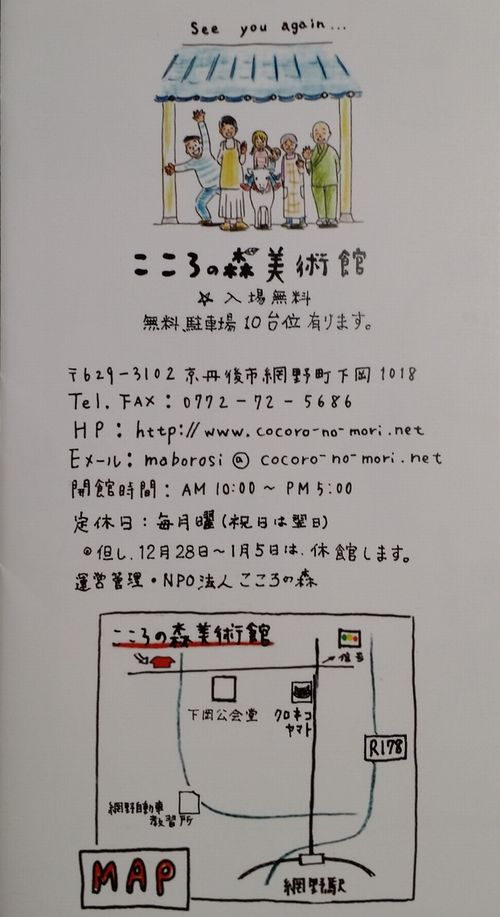 See you again...
こころの森美術館
☆入場無料
無料駐車場10台位有ります。
〒629-3102 京丹後市網野町下岡1018
Tel. FAX: 0772-72-5686
HP: http://www.cocoro-no-mori.net
Eメール: maborosi@cocoro-no-mori.net
開館時間: AM 10:00～PM 5:00
定休日: 毎月曜(祝日は翌日)
◎但し、12月28日～1月5日は、休館します。
運営管理・NPO法人こころの森
こころの森美術館
信号
下岡公会堂
クロネコ
ヤマト
R178
網野自動車
教習所
MAP
網野駅